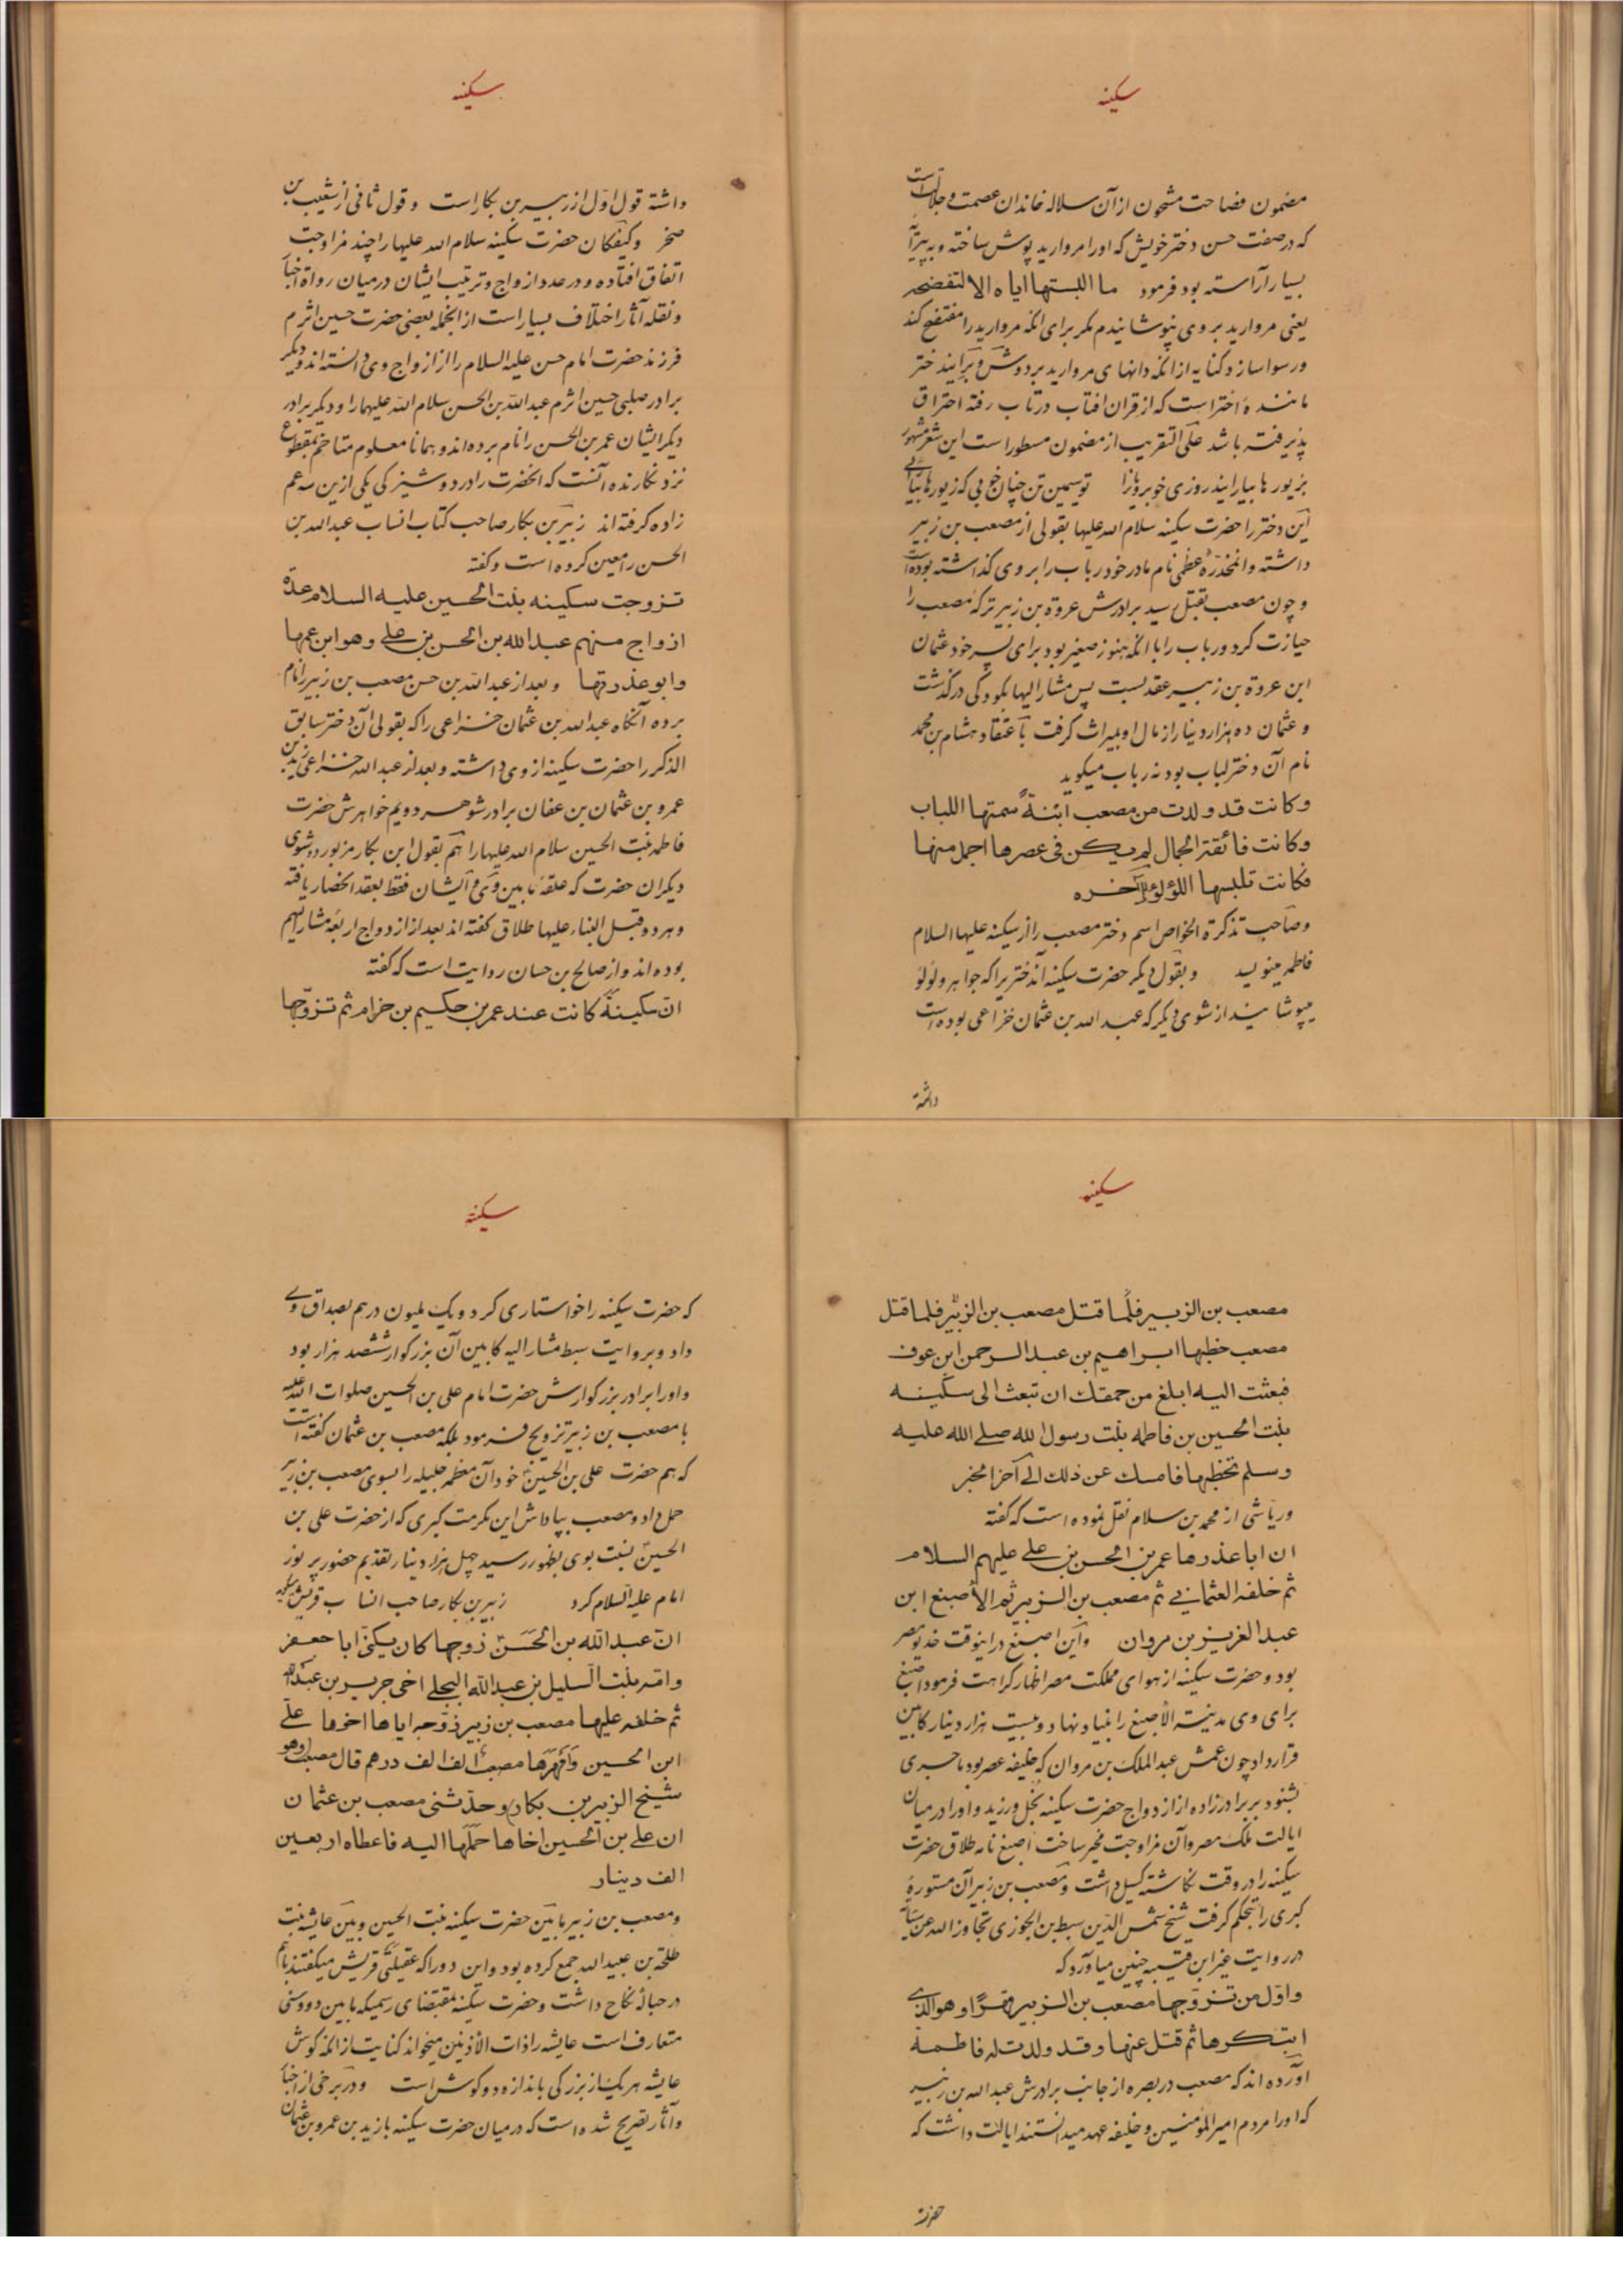 سکینه
مضمون فصاحت مشحون از آن سلاله خاندان عصمت و جلالت است
که در صفت حسن دختر خویش که او را مروارید پوش ساخته و به پیرایه
بسیار آراسته بود فرمود ما البستها ایاه الا لتفضحه
یعنی مروارید بر وی نپوشانیدم مکر برای انکه مروارید را مفتضح کند
و رسوا سازد کنایه از انکه دانهای مروارید بر دوش و بر ایندختر
مانند ه اختر است که از قران افتاب در تاب رفته احتراق
پذیرفته باشد علی التقریب از مضمون مسطور است این شعر مشهور
بزیورها بیارایند روزی خوبرویانرا تو سیمین تن چنان خوبی که زیورها بیارائی
این دختر را حضرت سکینه سلام الله علیها بقولی از مصعب بن زبیر
داشته و انمخدره عظمی نام مادر خود رباب را بر وی گذاشته بوده است
و چون مصعب بقتل رسید برادرش عروة بن زبیر ترکه مصعب را
حیازت کرد و رباب را با انکه هنوز صغیر بود برای پسر خود عثمان
ابن عروة بن زبیر عقد بست پس مشار الیها بکودکی درگذشت
و عثمان ده هزار دینار از مال او بمیراث کرفت باعتقاد هشام بن محمد
نام آن دختر لباب بود نه رباب میکوید
وکانت قد ولدت من مصعب ابنةً سمتها اللباب
وکانت فائقة الجمال لم یکن فی عصرها اجمل منها
فکانت تلبسها اللؤلؤ الی آخره
و صاحب تذکرة الخواص اسم دختر مصعب را از سکینه علیها السلام
فاطمه مینویسد و بقول دیکر حضرت سکینه آندختر یرا که جواهر و لؤلؤ
میپوشانید از شوی دیکر که عبد الله بن عثمان خزاعی بوده است
داشته
سکینه
داشته قول اول از زبیر بن بکار است و قول ثانی از شعیب بن
صخر و کیفکان حضرت سکینه سلام الله علیها را چند مزاوجت
اتفاق افتاده و در عدد ازواج و ترتیب ایشان درمیان رواة اخبار
و نقله آثار اختلاف بسیار است از انجمله بعضی حضرت حسین اثرم
فرزند حضرت امام حسن علیه السلام را از ازواج وی دانسته اند و دیکر
برادر صلبی حسین اثرم عبد الله بن الحسن سلام الله علیهما را و دیکر برادر
دیکر ایشان عمر بن الحسن را نام برده اند و همانا معلوم متاخم بمقطوع
نزد نکارنده آنست که انحضرت را در دوشیزکی یکی ازین سه عم
زاده کرفته اند زبیر بن بکار صاحب کتاب انساب عبد الله بن
الحسن را معین کرده است و کفته
تزوجت سکینه بنت الحسین علیه السلام عدة
ازواج منهم عبد الله بن الحسن بن علی وهو ابن عمها
وابو عذرتها و بعد از عبد الله بن حسن مصعب بن زبیر را نام
برده آنکاه عبد الله بن عثمان خزاعی را که بقولی آن دختر سابق
الذکر را حضرت سکینه از وی داشته و بعد از عبد الله خزاعی زید بن
عمرو بن عثمان بن عفان برادر شوهر دویم خواهرش حضرت
فاطمه بنت الحسین سلام الله علیها را هم بقول ابن بکار مزبور دو شوی
دیکران حضرت که علقه مابین وی و ایشان فقط بعقد انحصار یافته
و هر دو قبل البناء علیها طلاق کفته اند بعد از ازدواج اربعه مشار الیهم
بوده اند و از صالح بن حسان روایت است که کفته
انّ سکینةً کانت عند عمر بن حکیم بن حزام ثم تزوّجها
سکینه
مصعب بن الزبیر فلما قتل مصعب بن الزبیر فلما قتل
مصعب خطبها ابراهیم بن عبد الرحمن ابن عوف
فبعثت الیه ابلغ من حمقك ان تبعث الی سکینه
بنت الحسین بن فاطمه بنت رسول الله صلی الله علیه
وسلم تخطبها فامسك عن ذلك الی آخر الخبر
و ریاشی از محمد بن سلام نقل نموده است که کفته
ان ابا عذرها عمر بن الحسن بن علی علیهم السلام
ثم خلفه العثمانی ثم مصعب بن الزبیر ثم الأصبغ ابن
عبد العزیز بن مروان و این اصبغ در اینوقت خدیو مصر
بود و حضرت سکینه از هوای مملکت مصر اظهار کراهت فرمود اصبغ
برای وی مدینة الأصبغ را بنیاد نهاد و بیست هزار دینار کابین
قرارداد چون عمش عبد الملک بن مروان که خلیفه عصر بود ماجری
بشنود بر برادرزاده از ازدواج حضرت سکینه بخل ورزید و او را درمیان
ایالت ملک مصر و آن مزاوجت مخیر ساخت اصبغ نامه طلاق حضرت
سکینه را در وقت نکاشته کسیل داشت و مصعب بن زبیر آن مستوره
کبری را بتحکم کرفت شیخ شمس الدین سبط بن الجوزی تجاوز الله عن سیئاته
در روایت غیر ابن قتیبه چنین میاورد که
واوّل من تزوّجها مصعب بن الزبیر قهرًا وهو الذی
ابتکرها ثم قتل عنها وقد ولدت له فاطمة
آورده اند که مصعب در بصره از جانب برادرش عبد الله بن زبیر
که او را مردم امیر المؤمنین و خلیفه عهد میدانستند ایالت داشت که
حضرت
سکینه
که حضرت سکینه را خواستاری کرد و یک ملیون درهم بصداق وی
داد و بروایت سبط مشار الیه کابین آن بزرکوار ششصد هزار بود
و او را برادر بزرکوارش حضرت امام علی بن الحسین صلوات الله علیه
با مصعب بن زبیر تزویج فرمود بلکه مصعب بن عثمان کفته است
که هم حضرت علی بن الحسین خود آن معظمه جلیله را بسوی مصعب بن زبیر
حمل داد و مصعب بپاداش این مکرمت کبری که از حضرت علی بن
الحسین نسبت بوی بظهور رسید چهل هزار دینار تقدیم حضور پر نور
امام علیه السلام کرد زبیر بن بکار صاحب انساب قریش میکوید
انّ عبد الله بن الحَسَن زوجها کان یکنی ابا جعفر
وامّه بنت السلیل بن عبد الله البجلی اخی جریر بن عبد الله
ثم خلفه علیها مصعب بن زبیر زوّجه ایاها اخوها علی
ابن الحسین ومَهَرَها مصعب الف الف درهم قال مصعب (وهو
شیخ الزبیر بن بکار) وحدّثنی مصعب بن عثمان
ان علی بن الحسین اخاها حمَلَها الیه فاعطاه اربعین
الف دینار
و مصعب بن زبیر مابین حضرت سکینه بنت الحسین و بین عایشه بنت
طلحة بن عبید الله جمع کرده بود و این دو را که عقیلتی قریش میکفتند باهم
در حباله نکاح داشت و حضرت سکینه بمقتضای رسمیکه مابین دو وسنی
متعارف است عایشه را ذات الأذنین میخواند کنایت از انکه کوش
عایشه هر یک از بزرکی باندازه دو کوش است و در برخی از اخبار
و آثار تصریح شده است که درمیان حضرت سکینه با زید بن عمرو بن عثمان